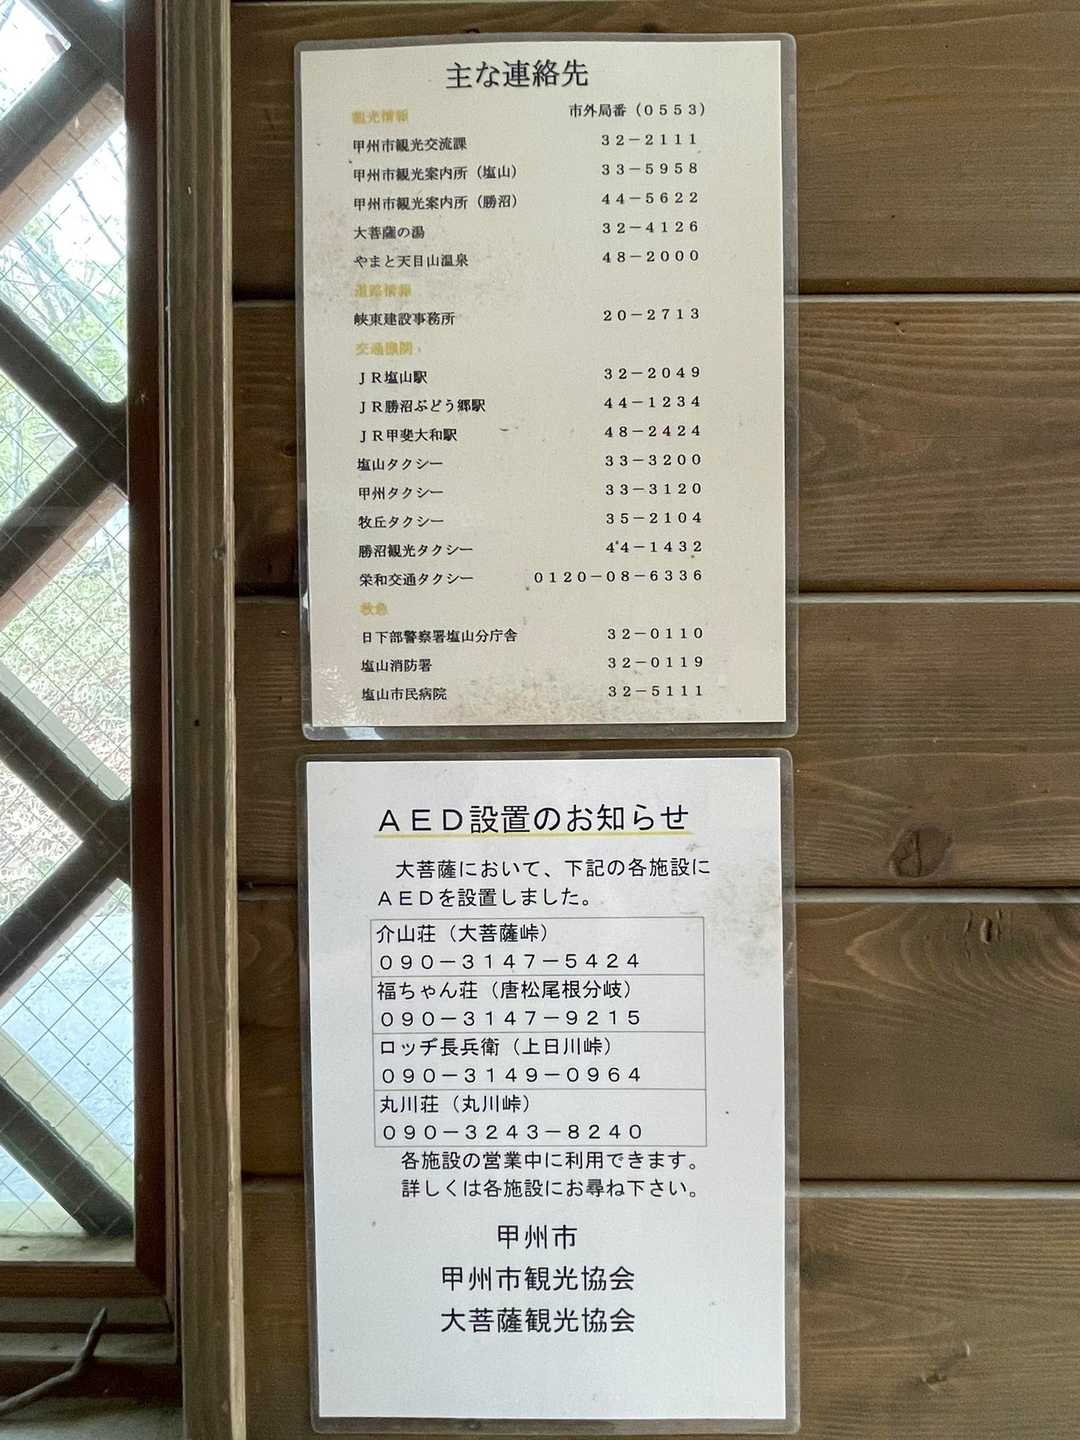 主な連絡先
観光情報 市外局番（０５５３）
甲州市観光交流課 ３２－２１１１
甲州市観光案内所（塩山） ３３－５９５８
甲州市観光案内所（勝沼） ４４－５６２２
大菩薩の湯 ３２－４１２６
やまと天目山温泉 ４８－２０００
道路情報
峡東建設事務所 ２０－２７１３
交通機関
ＪＲ塩山駅 ３２－２０４９
ＪＲ勝沼ぶどう郷駅 ４４－１２３４
ＪＲ甲斐大和駅 ４８－２４２４
塩山タクシー ３３－３２００
甲州タクシー ３３－３１２０
牧丘タクシー ３５－２１０４
勝沼観光タクシー ４４－１４３２
栄和交通タクシー ０１２０－０８－６３３６
救急
日下部警察署塩山分庁舎 ３２－０１１０
塩山消防署 ３２－０１１９
塩山市民病院 ３２－５１１１
ＡＥＤ設置のお知らせ
大菩薩において、下記の各施設に
ＡＥＤを設置しました。
介山荘（大菩薩峠）
０９０－３１４７－５４２４
福ちゃん荘（唐松尾根分岐）
０９０－３１４７－９２１５
ロッヂ長兵衛（上日川峠）
０９０－３１４９－０９６４
丸川荘（丸川峠）
０９０－３２４３－８２４０
各施設の営業中に利用できます。
詳しくは各施設にお尋ね下さい。
甲州市
甲州市観光協会
大菩薩観光協会